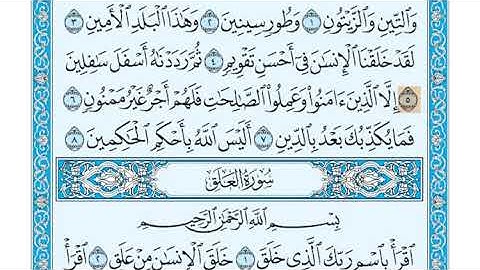 وَٱلتِّينِ وَٱلزَّيْتُونِ ١ وَطُورِ سِينِينَ ٢ وَهَٰذَا ٱلْبَلَدِ ٱلْأَمِينِ ٣
لَقَدْ خَلَقْنَا ٱلْإِنسَٰنَ فِىٓ أَحْسَنِ تَقْوِيمٍ ٤ ثُمَّ رَدَدْنَٰهُ أَسْفَلَ سَٰفِلِينَ
٥ إِلَّا ٱلَّذِينَ ءَامَنُوا۟ وَعَمِلُوا۟ ٱلصَّٰلِحَٰتِ فَلَهُمْ أَجْرٌ غَيْرُ مَمْنُونٍ ٦
فَمَا يُكَذِّبُكَ بَعْدُ بِٱلدِّينِ ٧ أَلَيْسَ ٱللَّهُ بِأَحْكَمِ ٱلْحَٰكِمِينَ ٨
سُورَةُ العَلَقِ
بِسْمِ ٱللَّهِ ٱلرَّحْمَٰنِ ٱلرَّحِيمِ
ٱقْرَأْ بِٱسْمِ رَبِّكَ ٱلَّذِى خَلَقَ ١ خَلَقَ ٱلْإِنسَٰنَ مِنْ عَلَقٍ ٢ ٱقْرَأْ